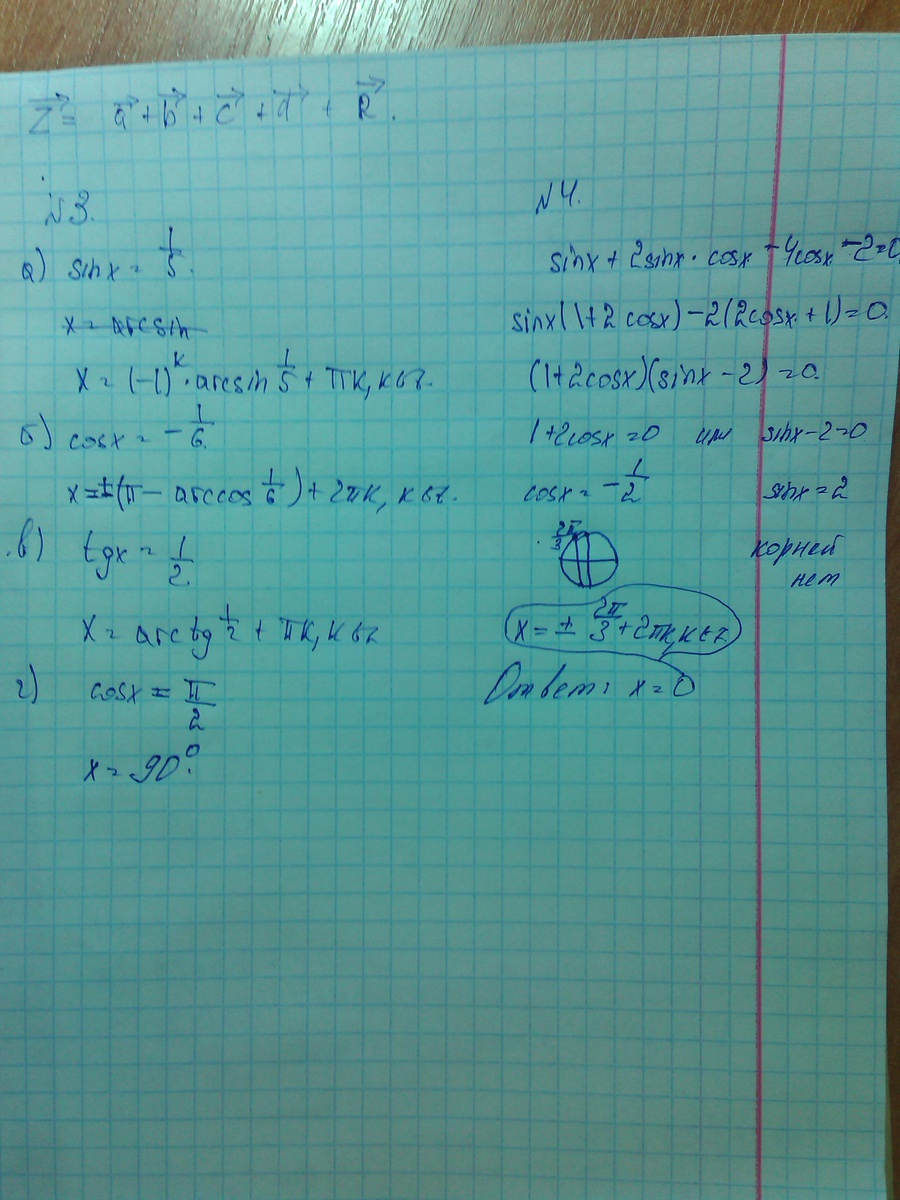 Z⃗ = a⃗ + b⃗ + c⃗ + d⃗ + R⃗.
№3.
а) sinx = 1/5.
x = arcsin
x = (-1)^k · arcsin 1/5 + πk, k∈z.
б) cosx = -1/6.
x = ±(π - arccos 1/6) + 2πk, k∈z.
в) tgx = 1/2.
x = arctg 1/2 + πk, k∈z
г) cosx = π/2
x = 90°.
№4.
sinx + 2sinx · cosx - 4cosx - 2 = 0
sinx(1+2cosx) - 2(2cosx + 1) = 0.
(1+2cosx)(sinx - 2) = 0.
1+2cosx = 0 или sinx - 2 = 0
cosx = -1/2 sinx = 2
2π/3 корней
нет
x = ± 2π/3 + 2πk, k∈z.
Ответ: x = 0